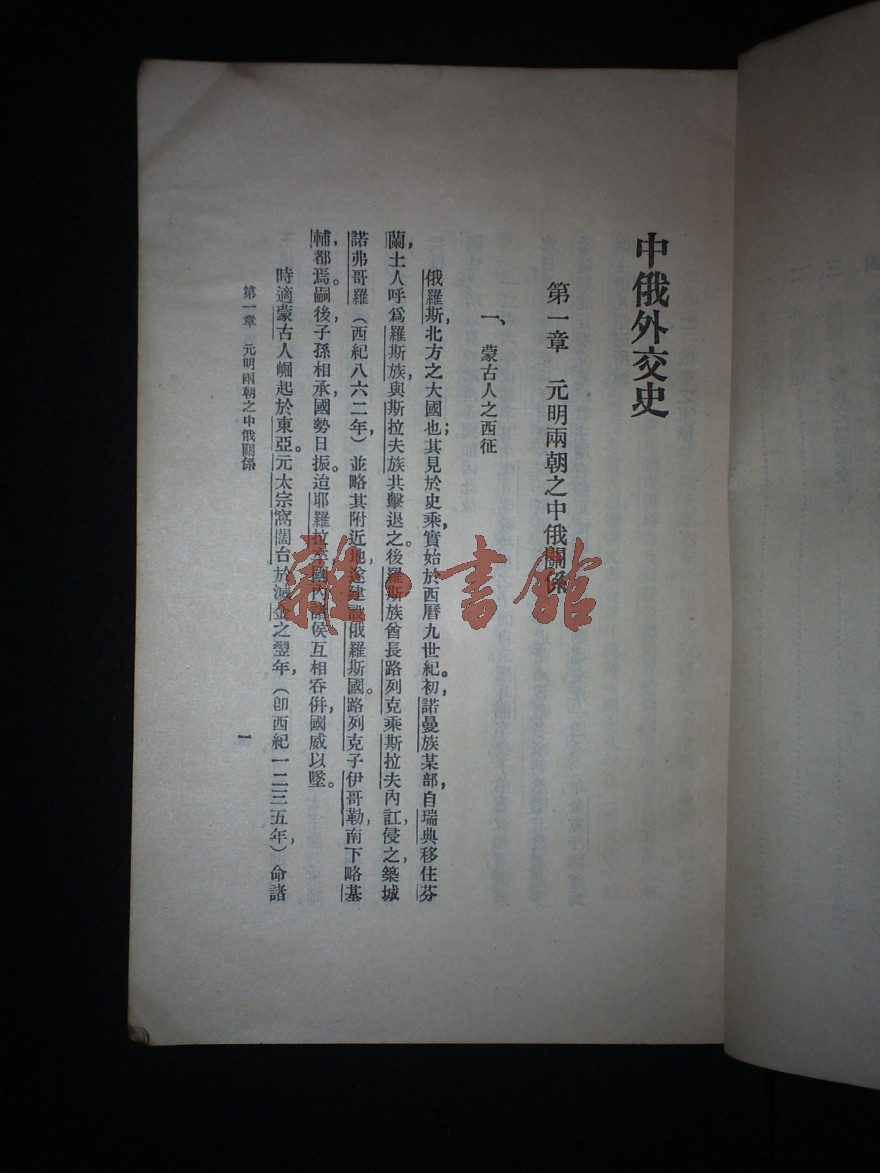 中俄外交史
第一章　元明兩朝之中俄關係
一、蒙古人之西征
俄羅斯，北方之大國也；其見於史乘，實始於西曆九世紀。初，諾曼族某部，自瑞典移住芬
蘭，土人呼爲羅斯族，與斯拉夫族共擊退之。後羅斯族酋長路列克乘斯拉夫內訌，侵之，築城
諾弗哥羅（西紀八六二年）並略其附近地，遂建設俄羅斯國。路列克子伊哥勒，南下略基
輔，都焉。嗣後子孫相承，國勢日振。迨耶羅拉卒，國內諸侯互相吞併，國威以墜。
時適蒙古人崛起於東亞。元太宗窩闊台於滅金之翌年，（卽西紀一二三五年）命諸
第一章　元明兩朝之中俄關係
一
雜·書館